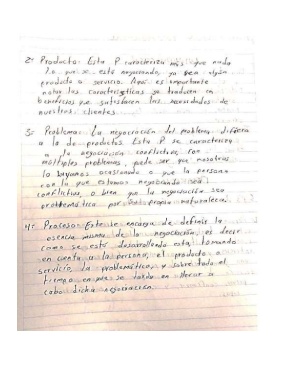 2- Producto: Esta P caracteriza más que nada
lo que se está negociando, ya sea algún
producto o servicio. Aquí es importante
notar las características y traducen en
beneficios que satisfacen las necesidades de
nuestros clientes.
3- Problema: La negociación del problema difiere
a la de productos. Esta P se caracteriza
a la negociación conflictiva con
múltiples problemas, puede ser que nosotros
lo hayamos ocasionado o que la persona
con la que estamos negociando sea
conflictiva, o bien que la negociación sea
problemática por su propia naturaleza.
4- Proceso: Este se encarga de definir la
esencia misma de la negociación, es decir
como se está desarrollando esta, tomando
en cuenta a la persona, el producto o
servicio, la problemática, y sobre todo el
tiempo en que se tarda en llevar a
cabo dicha negociación.